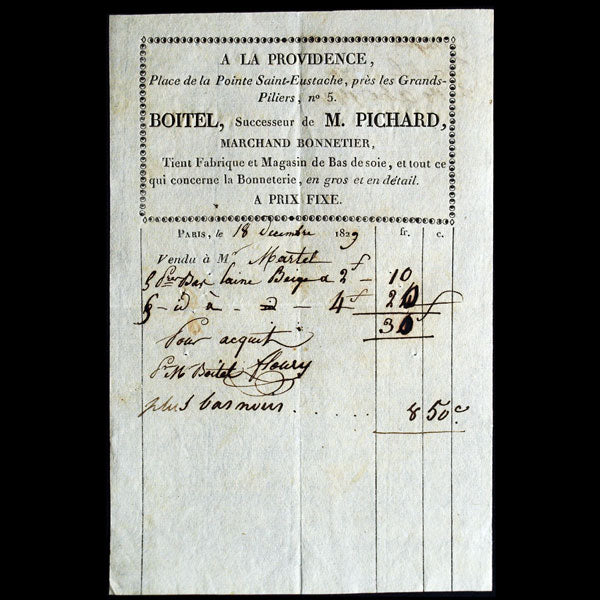 A LA PROVIDENCE,
Place de la Pointe Saint-Eustache, près les Grands-
Piliers, nº 5.
BOITEL, Successeur de M. PICHARD,
MARCHAND BONNETIER,
Tient Fabrique et Magasin de Bas de soie, et tout ce
qui concerne la Bonneterie, en gros et en détail.
A PRIX FIXE.
PARIS, le 18 Decembre 1829 fr. c.
Vendu à Mr Martel
5 Pres Bas laine Beige a 2f — 10
5 - id à - 4f 20f
30f
Pour acquit
Pr M Boitel fleury
plus bas noirs . . . . . 8 50c.